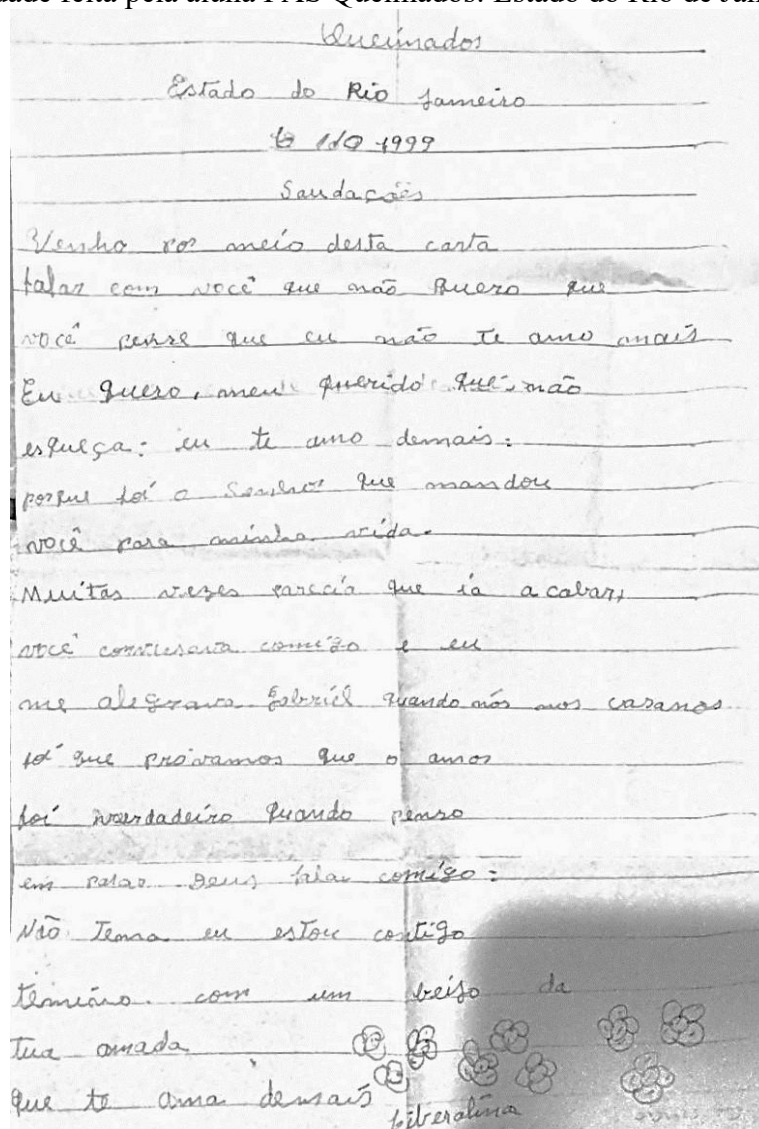 dade feita pela aluna PAS Queimados. Estado do Rio de Jan
Queimados
Estado do Rio Janneiro
1999
Saudações
Venho por meio desta carta
falar com você que não quero que
você pense que eu não te amo mais
Eu quero, meu querido que não
esqueça: eu te amo demais:
porque foi o Senhor que mandou
você para minha vida.
Muitas vezes parecia que ia acabar,
você conversava comigo e eu
me alegrava Gabriel quando nós nos casamos
foi que provamos que o amor
foi verdadeiro quando penso
em parar Deus falar comigo:
Não Tema eu estou contigo
termino com um beijo da
Tua amada
que te ama demais Liberalina